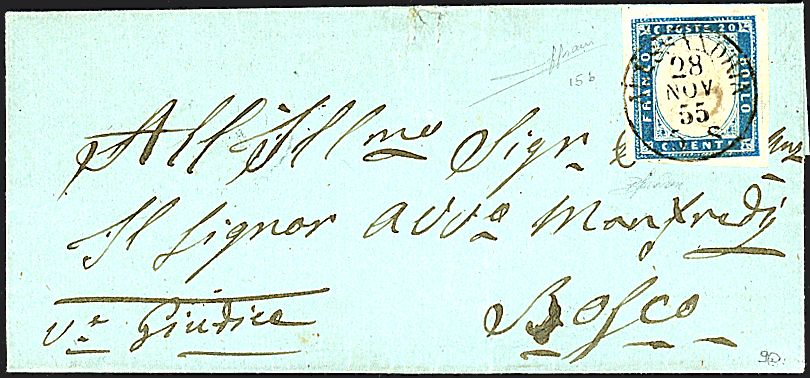 C. POSTE 20
FRANCO BOLLO
C. VENTI
ALESSANDRIA
28
NOV
55
15b
All Illmo Sigr
Il Signor Avvo Manfredi
Bosco
Ve Giudice
90.